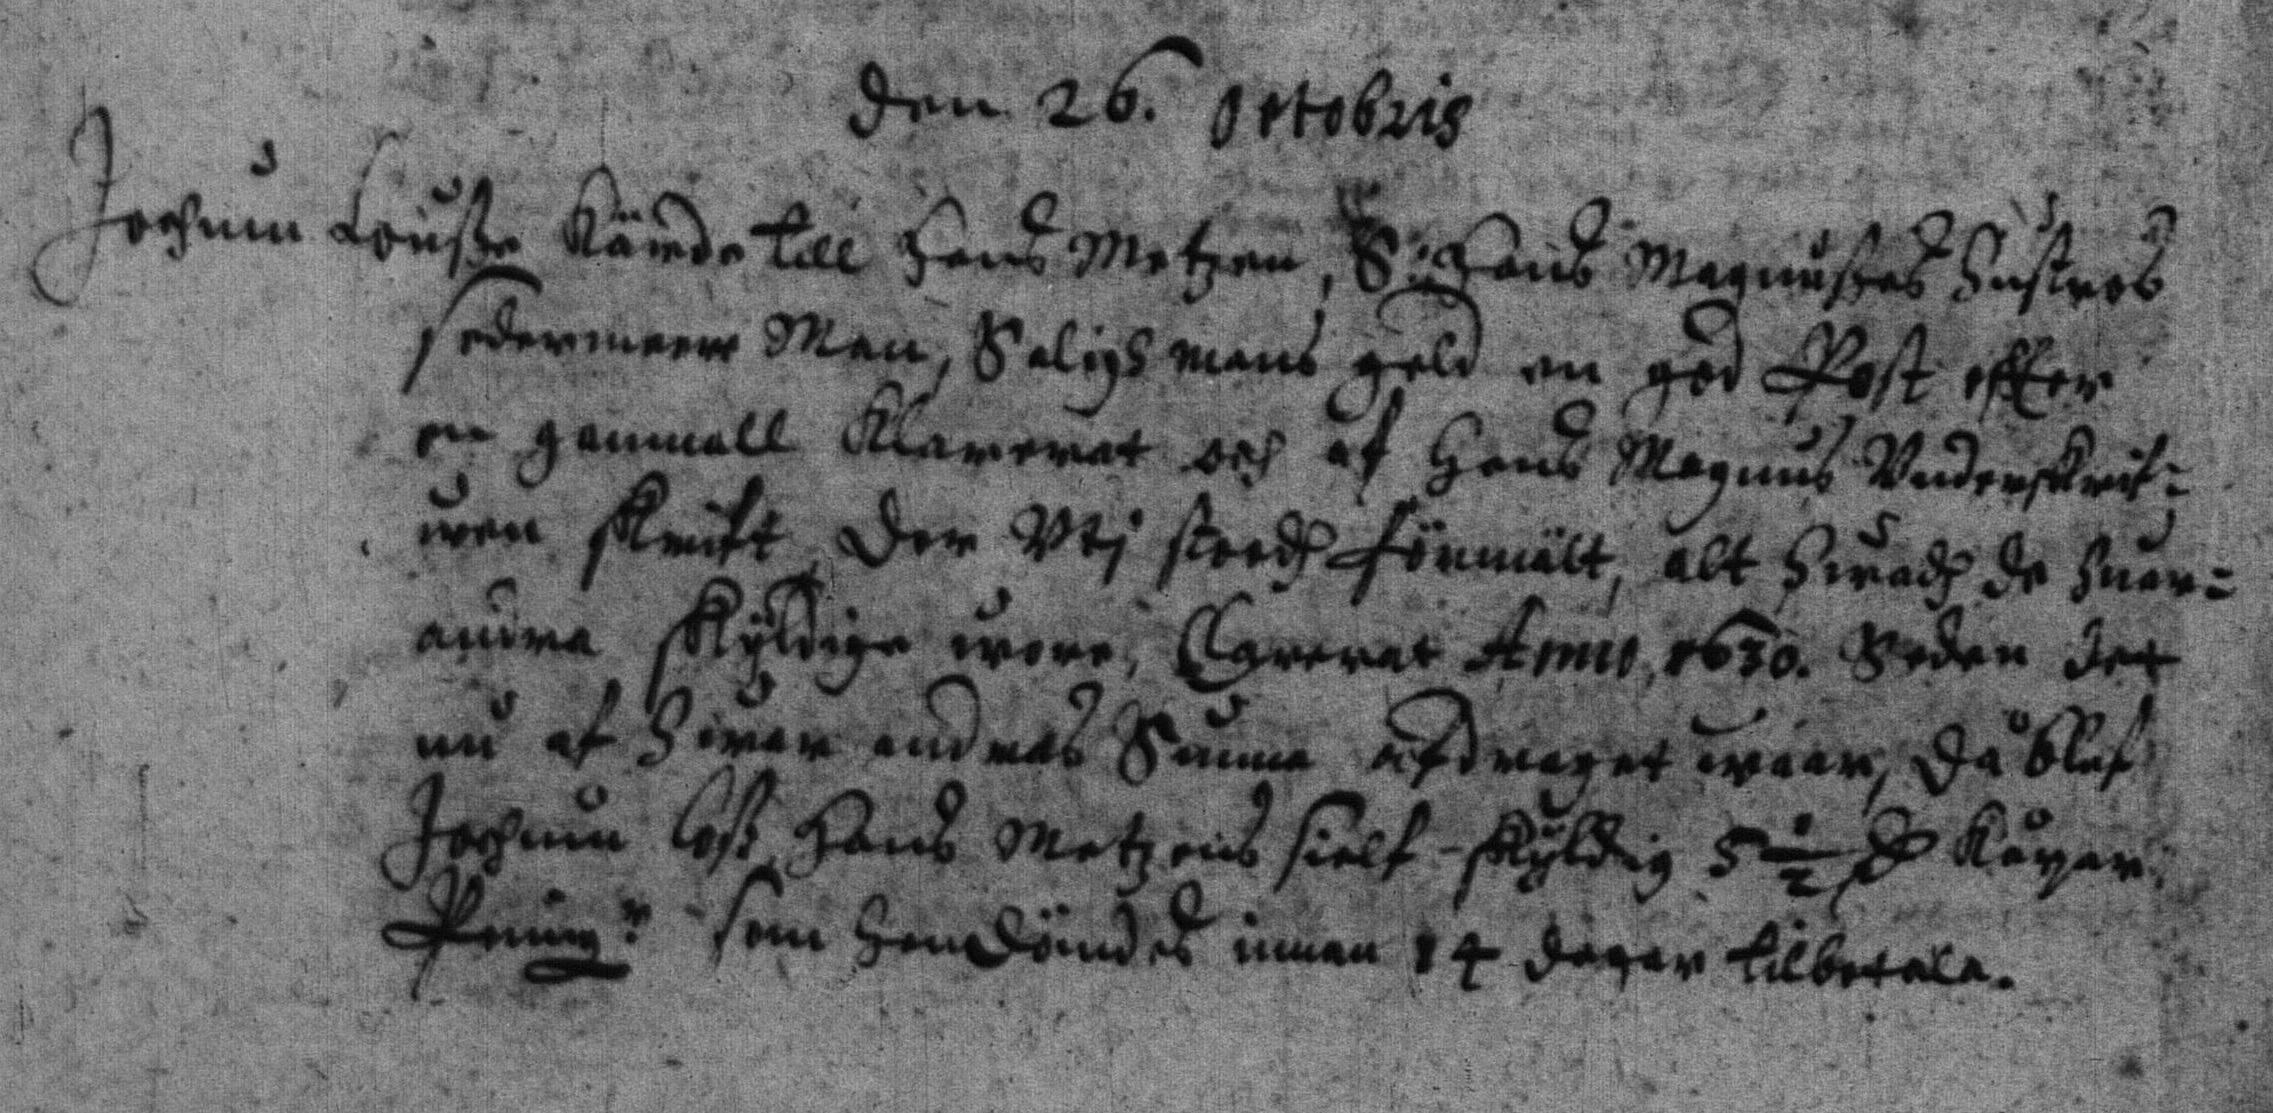 den 26. Octobris
Jochum Louße Kände till Hans Metzen, S: Hans Magnußes Hustros
sedermeere Man, Saligh mans geld en god Post effter
en gammall Klarerat och af Hans Magnus Vnderskrif:
wen skrift, der Vtj stoodh förmält, alt hwadh de huar:
andra skÿldige wore, Clarerat Anno, 1630. Seden det
nu af hwar andras Summa afdraget waar, då blef
Jochum Loß Hans Metzens sielf skÿldig 5 1/2 D Kopar
Pening: som han dömdes innan 14 dagar tilbetala.